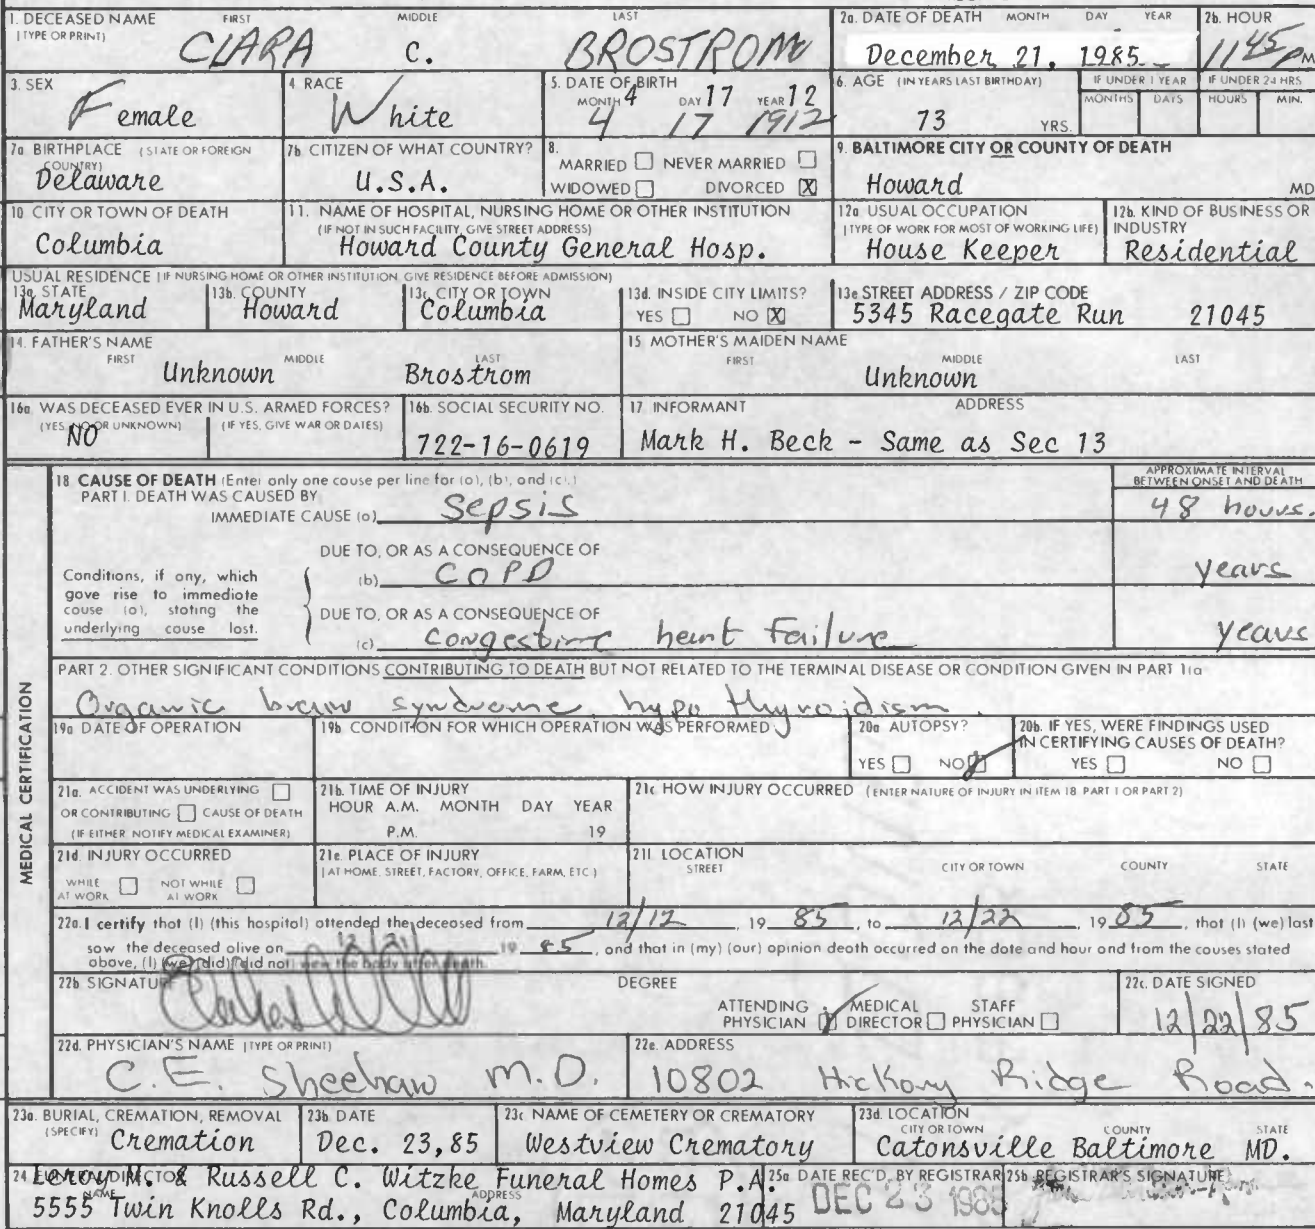 1. DECEASED NAME FIRST MIDDLE LAST
(TYPE OR PRINT)
CLARA C. BROSTROM
2a. DATE OF DEATH MONTH DAY YEAR
December 21, 1985
2b. HOUR
1145 PM
3. SEX
Female
4. RACE
White
5. DATE OF BIRTH
MONTH 4 DAY 17 YEAR 12
4 17 1912
6. AGE (IN YEARS LAST BIRTHDAY)
73 YRS.
IF UNDER 1 YEAR
MONTHS DAYS
IF UNDER 24 HRS
HOURS MIN.
7a BIRTHPLACE (STATE OR FOREIGN
COUNTRY)
Delaware
7b CITIZEN OF WHAT COUNTRY?
U.S.A.
8.
MARRIED NEVER MARRIED
WIDOWED DIVORCED X
9. BALTIMORE CITY OR COUNTY OF DEATH
Howard MD
10 CITY OR TOWN OF DEATH
Columbia
11. NAME OF HOSPITAL, NURSING HOME OR OTHER INSTITUTION
(IF NOT IN SUCH FACILITY, GIVE STREET ADDRESS)
Howard County General Hosp.
12a. USUAL OCCUPATION
(TYPE OF WORK FOR MOST OF WORKING LIFE)
House Keeper
12b. KIND OF BUSINESS OR
INDUSTRY
Residential
USUAL RESIDENCE (IF NURSING HOME OR OTHER INSTITUTION GIVE RESIDENCE BEFORE ADMISSION)
13a. STATE
Maryland
13b. COUNTY
Howard
13c. CITY OR TOWN
Columbia
13d. INSIDE CITY LIMITS?
YES NO X
13e STREET ADDRESS / ZIP CODE
5345 Racegate Run 21045
14. FATHER'S NAME
FIRST MIDDLE LAST
Unknown Brostrom
15 MOTHER'S MAIDEN NAME
FIRST MIDDLE LAST
Unknown
16a WAS DECEASED EVER IN U.S. ARMED FORCES?
(YES, NO OR UNKNOWN) (IF YES, GIVE WAR OR DATES)
NO
16b. SOCIAL SECURITY NO.
722-16-0619
17 INFORMANT ADDRESS
Mark H. Beck - Same as Sec 13
MEDICAL CERTIFICATION
18 CAUSE OF DEATH (Enter only one cause per line for (a), (b), and (c).)
PART I. DEATH WAS CAUSED BY
APPROXIMATE INTERVAL
BETWEEN ONSET AND DEATH
IMMEDIATE CAUSE (a) Sepsis 48 hours.
DUE TO, OR AS A CONSEQUENCE OF
(b) COPD years
Conditions, if any, which
gave rise to immediate
cause (a), stating the
underlying cause last.
DUE TO, OR AS A CONSEQUENCE OF
(c) Congestive heart Failure years
PART 2. OTHER SIGNIFICANT CONDITIONS CONTRIBUTING TO DEATH BUT NOT RELATED TO THE TERMINAL DISEASE OR CONDITION GIVEN IN PART 1(a
Organic brain syndrome, hypothyroidism.
19a DATE OF OPERATION
19b CONDITION FOR WHICH OPERATION WAS PERFORMED
20a AUTOPSY?
YES NO
20b. IF YES, WERE FINDINGS USED
IN CERTIFYING CAUSES OF DEATH?
YES NO
21a. ACCIDENT WAS UNDERLYING
OR CONTRIBUTING CAUSE OF DEATH
(IF EITHER NOTIFY MEDICAL EXAMINER)
21b. TIME OF INJURY
HOUR A.M. MONTH DAY YEAR
P.M. 19
21c HOW INJURY OCCURRED (ENTER NATURE OF INJURY IN ITEM 18 PART 1 OR PART 2)
21d. INJURY OCCURRED
WHILE NOT WHILE
AT WORK AT WORK
21e. PLACE OF INJURY
(AT HOME, STREET, FACTORY, OFFICE, FARM, ETC)
21f. LOCATION
STREET CITY OR TOWN COUNTY STATE
22a. I certify that (I) (this hospital) attended the deceased from 12/12 19 85, to 12/22 1985, that (I) (we) last
saw the deceased alive on 12/21 19 85, and that in (my) (our) opinion death occurred on the date and hour and from the causes stated
above, (I) (we) (did) (did not) view the body after death.
22b SIGNATURE
DEGREE
ATTENDING MEDICAL STAFF
PHYSICIAN DIRECTOR PHYSICIAN
22c. DATE SIGNED
12/22/85
22d. PHYSICIAN'S NAME (TYPE OR PRINT)
C.E. Sheehan M.D.
22e. ADDRESS
10802 Hickory Ridge Road.
23a. BURIAL, CREMATION, REMOVAL
(SPECIFY) Cremation
23b DATE
Dec. 23,85
23c NAME OF CEMETERY OR CREMATORY
Westview Crematory
23d. LOCATION
CITY OR TOWN COUNTY STATE
Catonsville Baltimore MD.
24 FUNERAL DIRECTOR
Leroy M. & Russell C. Witzke Funeral Homes P.A.
NAME ADDRESS
5555 Twin Knolls Rd., Columbia, Maryland 21045
25a DATE REC'D. BY REGISTRAR
DEC 23 1985
25b REGISTRAR'S SIGNATURE